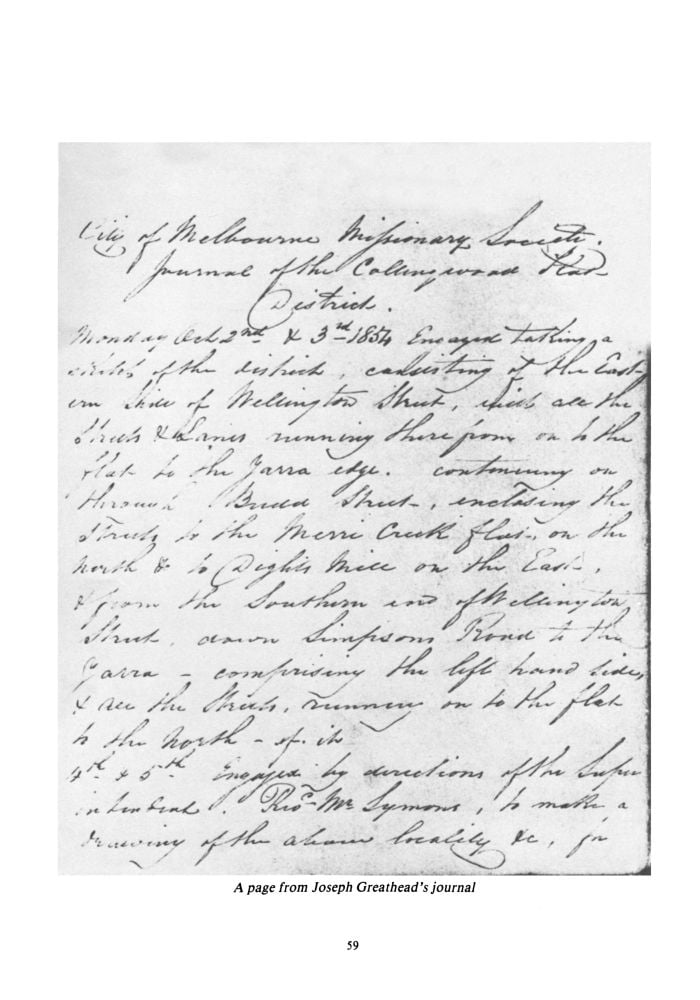 City of Melbourne Missionary Society.
Journal of the Collingwood Flat
District.
Monday Oct 2nd & 3rd 1854 Engaged taking a
sketch of the district, consisting of the East-
ern side of Wellington Street, with all the
Streets & Lanes running there from on to the
flat to the Yarra edge. continuing on
through Budd Street, enclosing the
Streets to the Merri Creek flat, on the
North & to Dights Mill on the East,
& from the Southern end of Wellington
Street, down Simpsons Road to the
Yarra - comprising the left hand side,
& all the Streets, running on to the flat
to the North - of it
4th & 5th Engaged by directions of the Super
intendent. Mr Symons, to make a
drawing of the above locality &c, for
A page from Joseph Greathead's journal
59